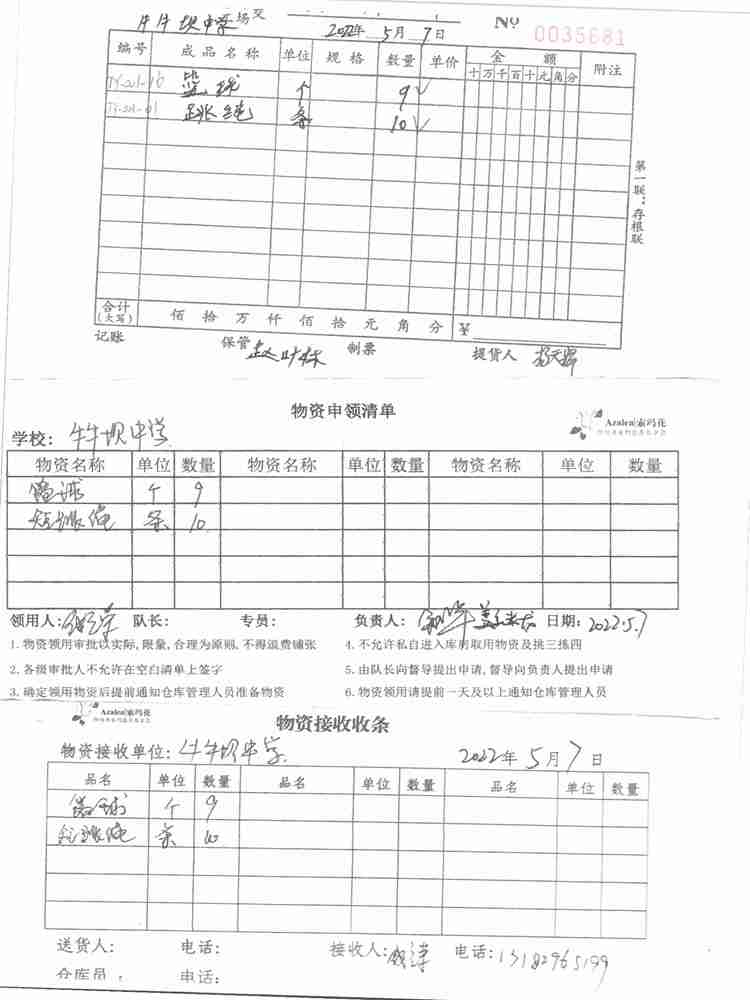 牛牛坝中学场交
2022年 5月 7日
№ 0035681
编号 成品名称 单位 规格 数量 单价 金额 附注
十万千百十元角分
TY-201-16 篮球 个 9√
TY-201-01 跳绳 条 10√
第一联:存根联
合计(大写) 佰 拾 万 仟 佰 拾 元 角 分 ¥
记账 保管 制票 提货人
物资申领清单
Azalea|索玛花
学校: 牛牛坝中学
物资名称 单位 数量 物资名称 单位 数量 物资名称 单位 数量
篮球 个 9
短跳绳 条 10
领用人: 队长: 专员: 负责人: 日期: 2022.5.7
1. 物资领用审批以实际,限量,合理为原则,不得浪费铺张 4. 不允许私自进入库房取用物资及挑三拣四
2. 各级审批人不允许在空白清单上签字 5. 由队长向督导提出申请,督导向负责人提出申请
3. 确定领用物资后提前通知仓库管理人员准备物资 6. 物资领用请提前一天及以上通知仓库管理人员
Azalea|索玛花
物资接收收条
物资接收单位: 牛牛坝中学 2022年 5月 7日
品名 单位 数量 品名 单位 数量 品名 单位 数量
篮球 个 9
短跳绳 条 10
送货人: 电话: 接收人: 电话: 13182965199
仓库员: 电话: